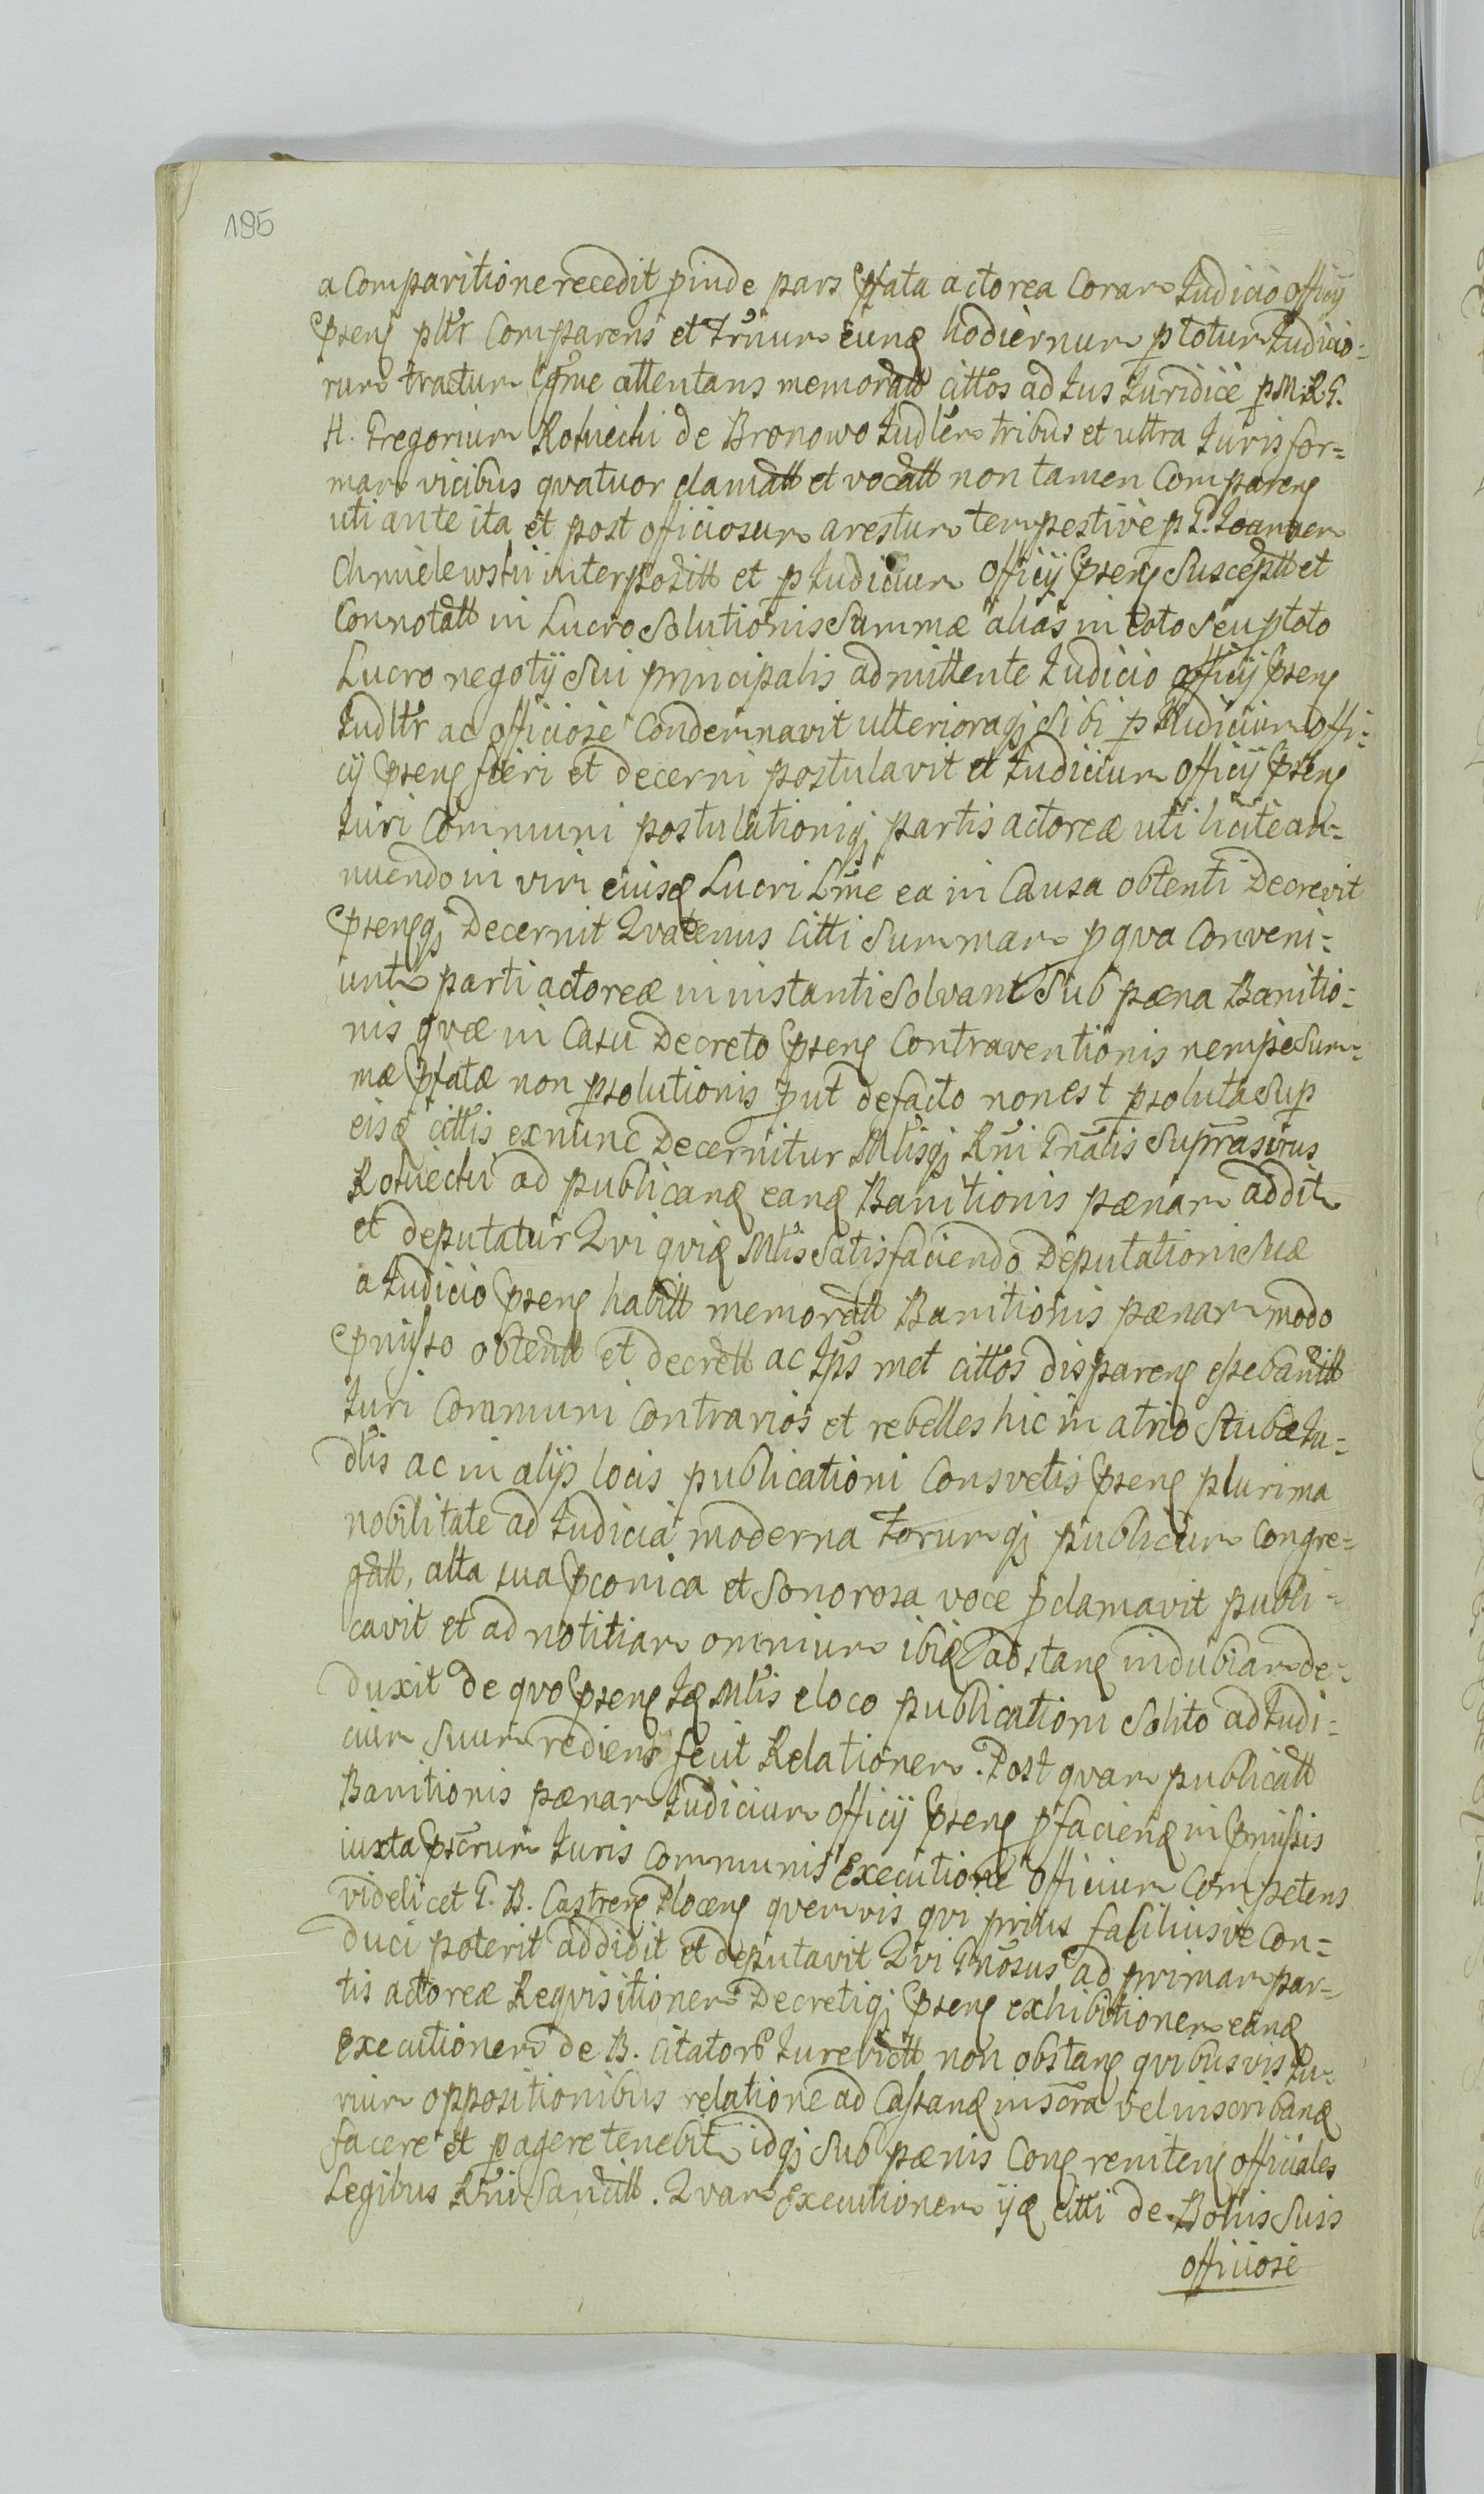 195
a Comparitione recedit pinde pars pfata actorea Coram Judicio officij
pseng pltr Comparens et Trnum eunq hodiernum p totum Judicio=
rum tractum lgme attentans memoratt cittos ad Jus Juridice p M. R. G.
H. Gregorium Kotwicki de Bronowo Judlem tribus et ultra Juris for=
mam vicibus qvatuor clamatt et vocatt non tamen Compareng
uti ante ita et post officiosum arestum tempestive p G. Joannem
Chmielewski interpositt et p Judicium Officij pseng Susceptt et
Connotatt in Lucro Solutionis Summæ alias in toto seu p toto
Lucro negotij Sui principalis admittente Judicio officij pseng
Judltr ac officiose Condemnavit ulterioraqj Sibi p Judicium offi=
cij pseng fieri et decerni postulavit et Judicium Officij pseng
Juri Communi postulationiqj partis actoreæ uti licite an=
nuendo in vim eiusq Lucri Lme ea in Causa obtenti Decrevit
psengqj Decernit Qvatenus Citti Summam p qva Conveni=
unt parti actoreæ in instanti Solvant Sub pæna Banitio=
nis qvæ in Casu Decreto pseng Contraventionis nempe Sum=
mæ pfatæ non psolutionis put de facto non est psoluta Sup
eisq cittis ex nunc Decernitur Mlisqj Rni Gnalis Suprascrus
Kotwicki ad publicanq eanq Banitionis pænam additr
et deputatur Qvi qviq Mlis Satisfaciendo Deputationi Suæ
a Judicio pseng habitt memoratt Banitionis pænam modo
pmisso obtentt et decrett ac Jps met cittos dispareng esse banitt
Juri Communi Contrarios et rebelles hic in atrio Stubæ Ju=
dlis ac in alijs locis publicationi Consvetis pseng plurima
nobilitate ad Judicia moderna Forumqj publicum Congre=
gatt, alta sua pconica et Sonorosa voce pclamavit publi=
cavit et ad notitiam omnium ibiq adstang indubiam de=
duxit de qvo pseng Jq Mlis e loco publicationi Solito ad Judi=
cium Suum rediens fecit Relationem. Post qvam publicatt
Banitionis pænam Judicium officij pseng p facienq in pmissis
iuxta pscrum Juris Communis Executione Officium Competens
videlicet G. B. Castreng Ploceng qvemvis qvi prius faciliusve Con=
duci poterit addidit et deputavit Qvi Gnosus ad primam par=
tis actoreæ Reqvisitionem Decretiqj pseng exhibitionem eanq
Executionem de B. citator Jurevictt non obstang qvibusvis Ju=
rium oppositionibus relatione ad Cassanq inscra vel inscribanq
facere et pagere tenebitr idqj Sub pænis Cong reniteng officiales
Legibus Rni Sancitt. Qvam Executionem ijq citti de Bonis Suis
officiose